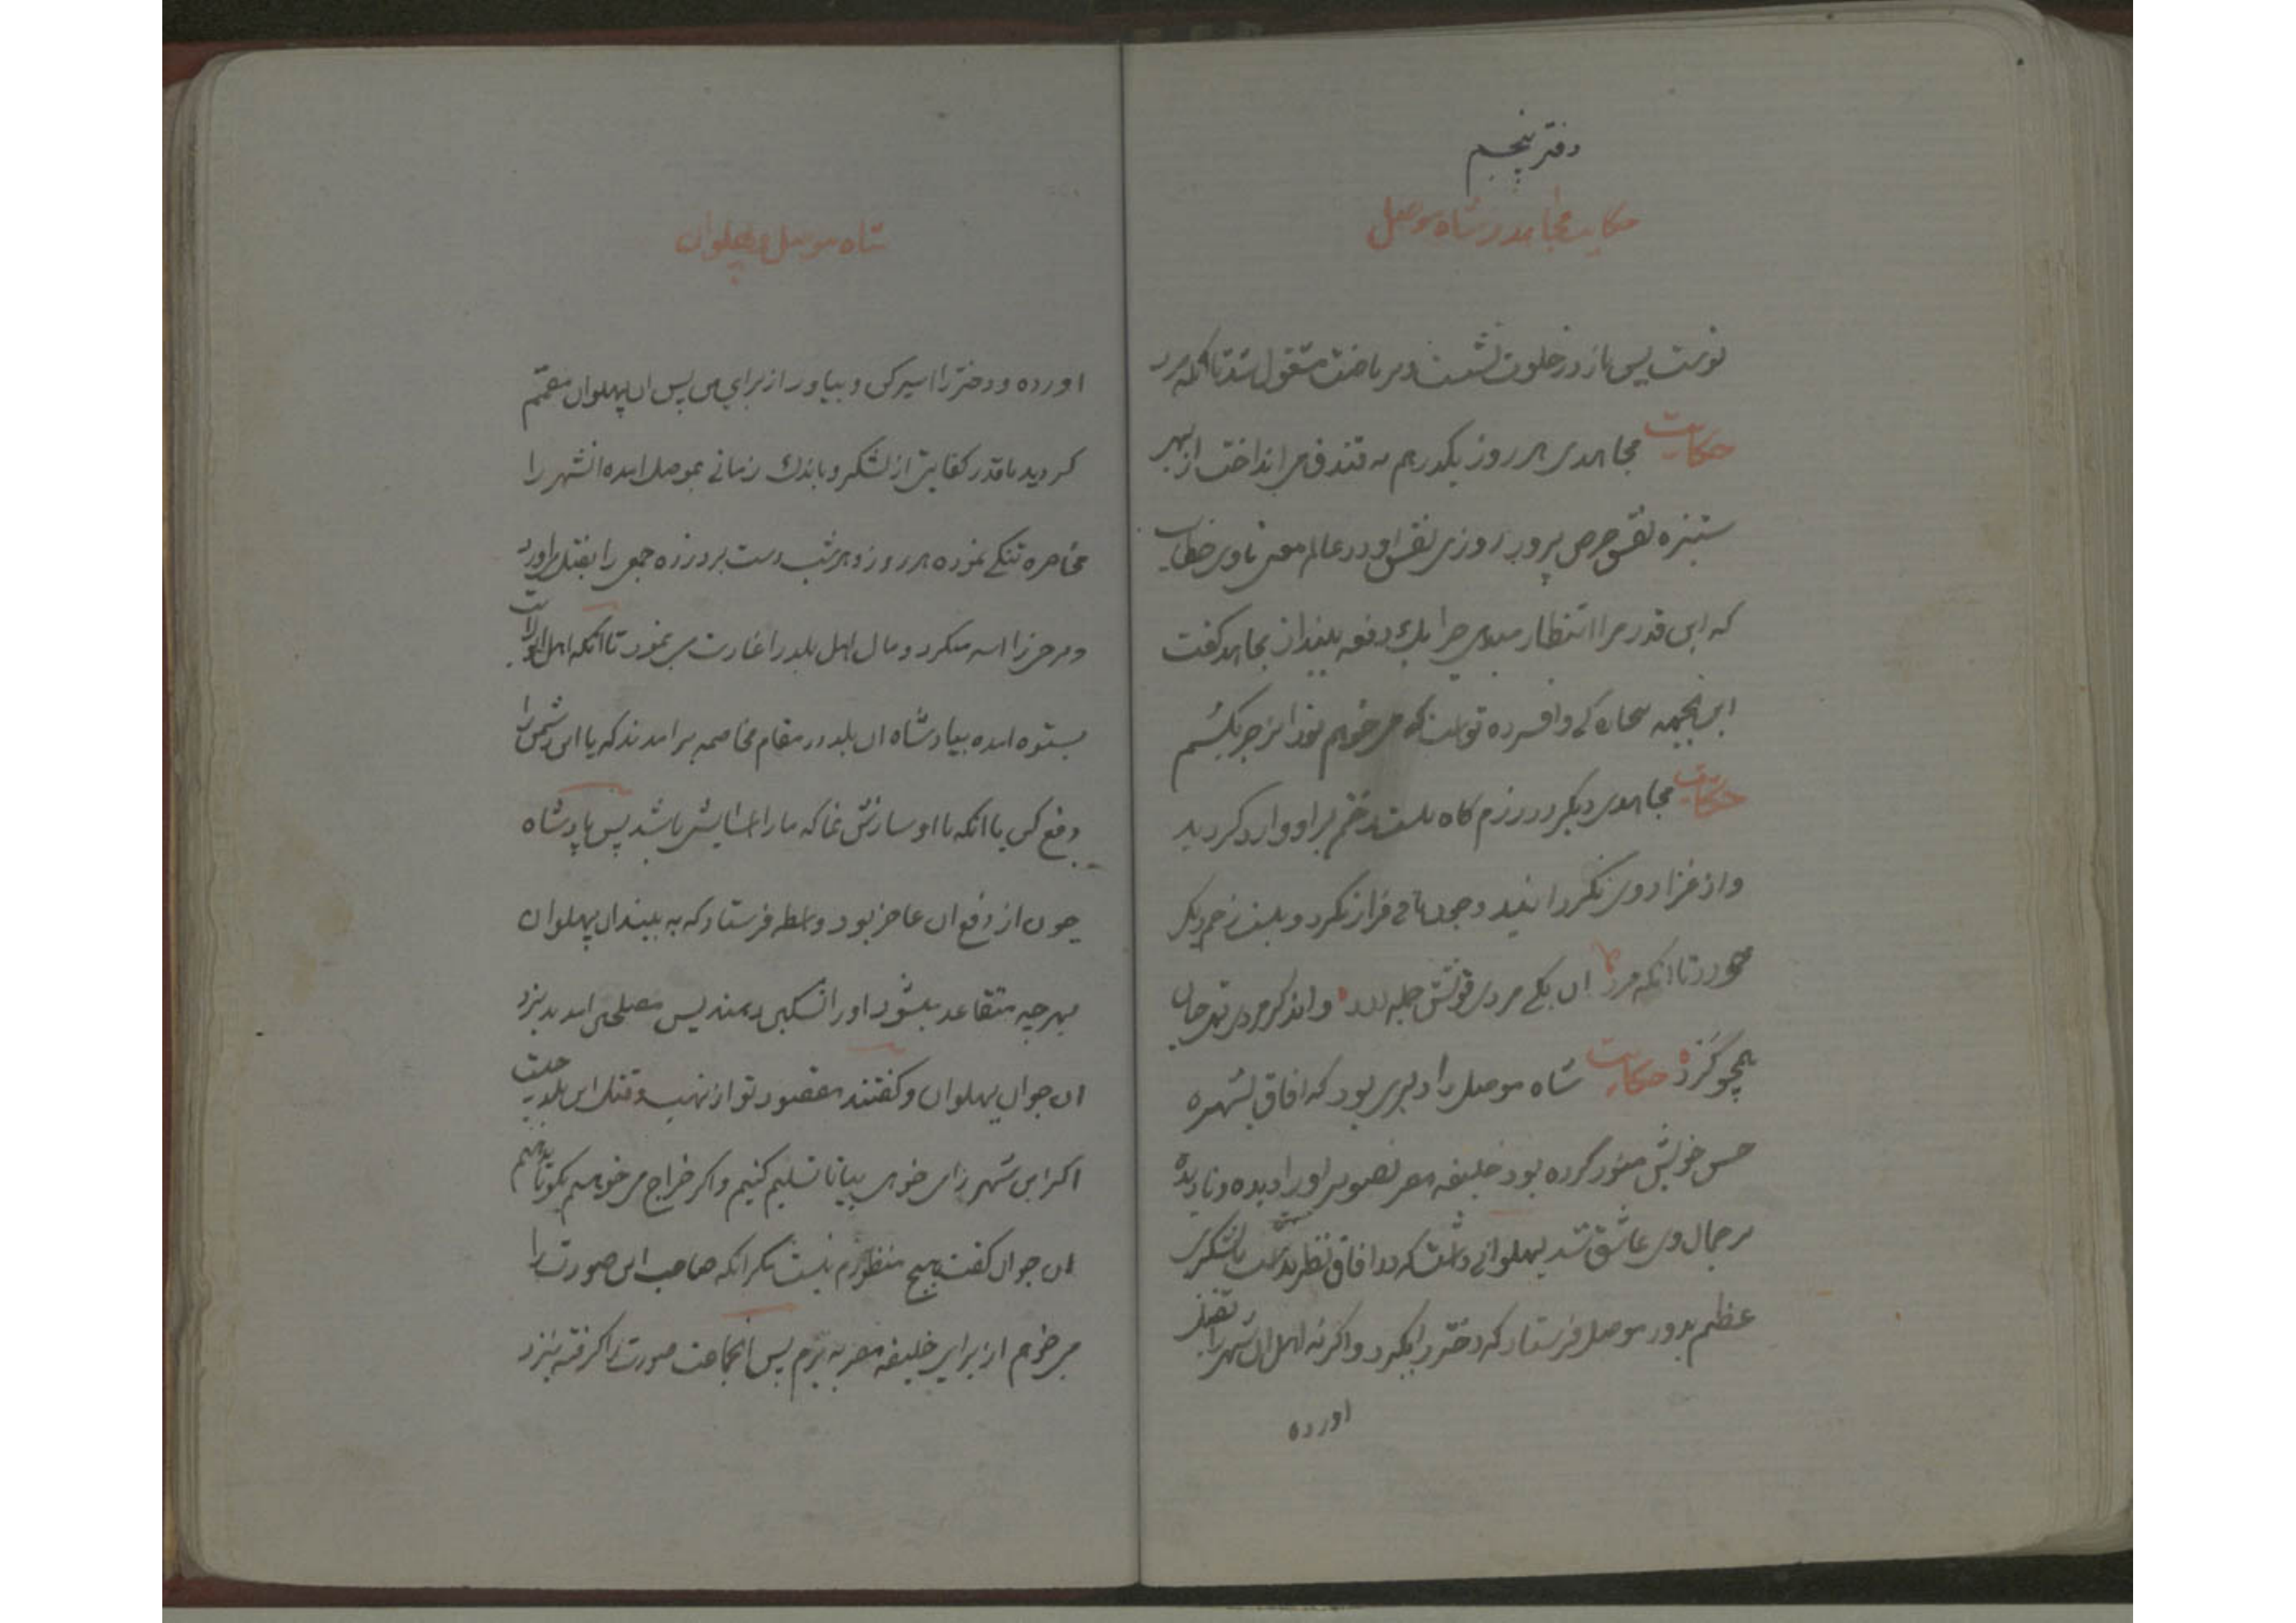 دفتر پنجم
حکایت مجاهد و شاه موصل
نوست پس باز در خلوت نشست و بریاضت مشغول شد تا آنکه مرد
حکایت مجاهدی هر روز یکدرهم به خندق می انداخت از بهر
ستیزه نفس حرص پرور روزی نفس او در عالم معنی باوی خطاب
که این قدر مرا انتظار میدهی چرا یک دفعه نیندازی مجاهد گفت
این همه و افسرده تو است که می خواهم تو را بزجر بکشم
حکایت مجاهدی دیگر در رزم گاه بیست زخم بر او وارد گردید
و از غزا روی نگردانید و چون باقی فرار نکرد و بیست زخم دیگر
خورد تا آنکه مرد آن یکی مردی قوتش جمله و آن دگر مردی تهی جان
همچو گرد حکایت شاه موصل را دلبری بود که آفاق بشهره
حسن خویش منور کرده بود خلیفه مصر تصویر او را دیده و نادیده
بر جمال وی عاشق شد پهلوانی داشت که در آفاق نظیر نداشت با لشکری
عظیم بدور موصل فرستاد که دختر را بگیرد و اگر نه اهل آن شهر را بقتل
اورده
شاه موصل و پهلوان
اورده و دختر را اسیر کن و بیاور از برای من پس آن پهلوان مصمم
گردید با قدر کفایتی از لشکر و باندک زمانی بموصل امده انشهر را
محاصره تنگی نموده هر روز و هر شب دست برد زده جمعی را بقتل می اورد
و برخی را اسیر میکرد و مال اهل بلد را غارت می نمود تا آنکه اهل ولایت
بستوه امده بپادشاه آن بلد در مقام مخاصمه برامدند که یا این دشمن را
دفع کن یا آنکه با او سازش نما که ما را آسایش باشد پس پادشاه
چون از دفع آن عاجز بود واسطه فرستاد که به بیند آن پهلوان
بهرچه متقاعد میشود او را تسکین دهند پس مصلحی آمد به نزد
ان جوان پهلوان و گفتند مقصود تو از نهب و قتل این بلد چیست
اگر این شهر را می خواهی بیا تا تسلیم کنیم و اگر خراج می خواهی بگو تا بدهیم
ان جوان گفت هیچ منظورم نیست مگر آنکه صاحب این صورت را
می خواهم از برای خلیفه مصر به برم پس آنجماعت صورت را گرفته بنزد